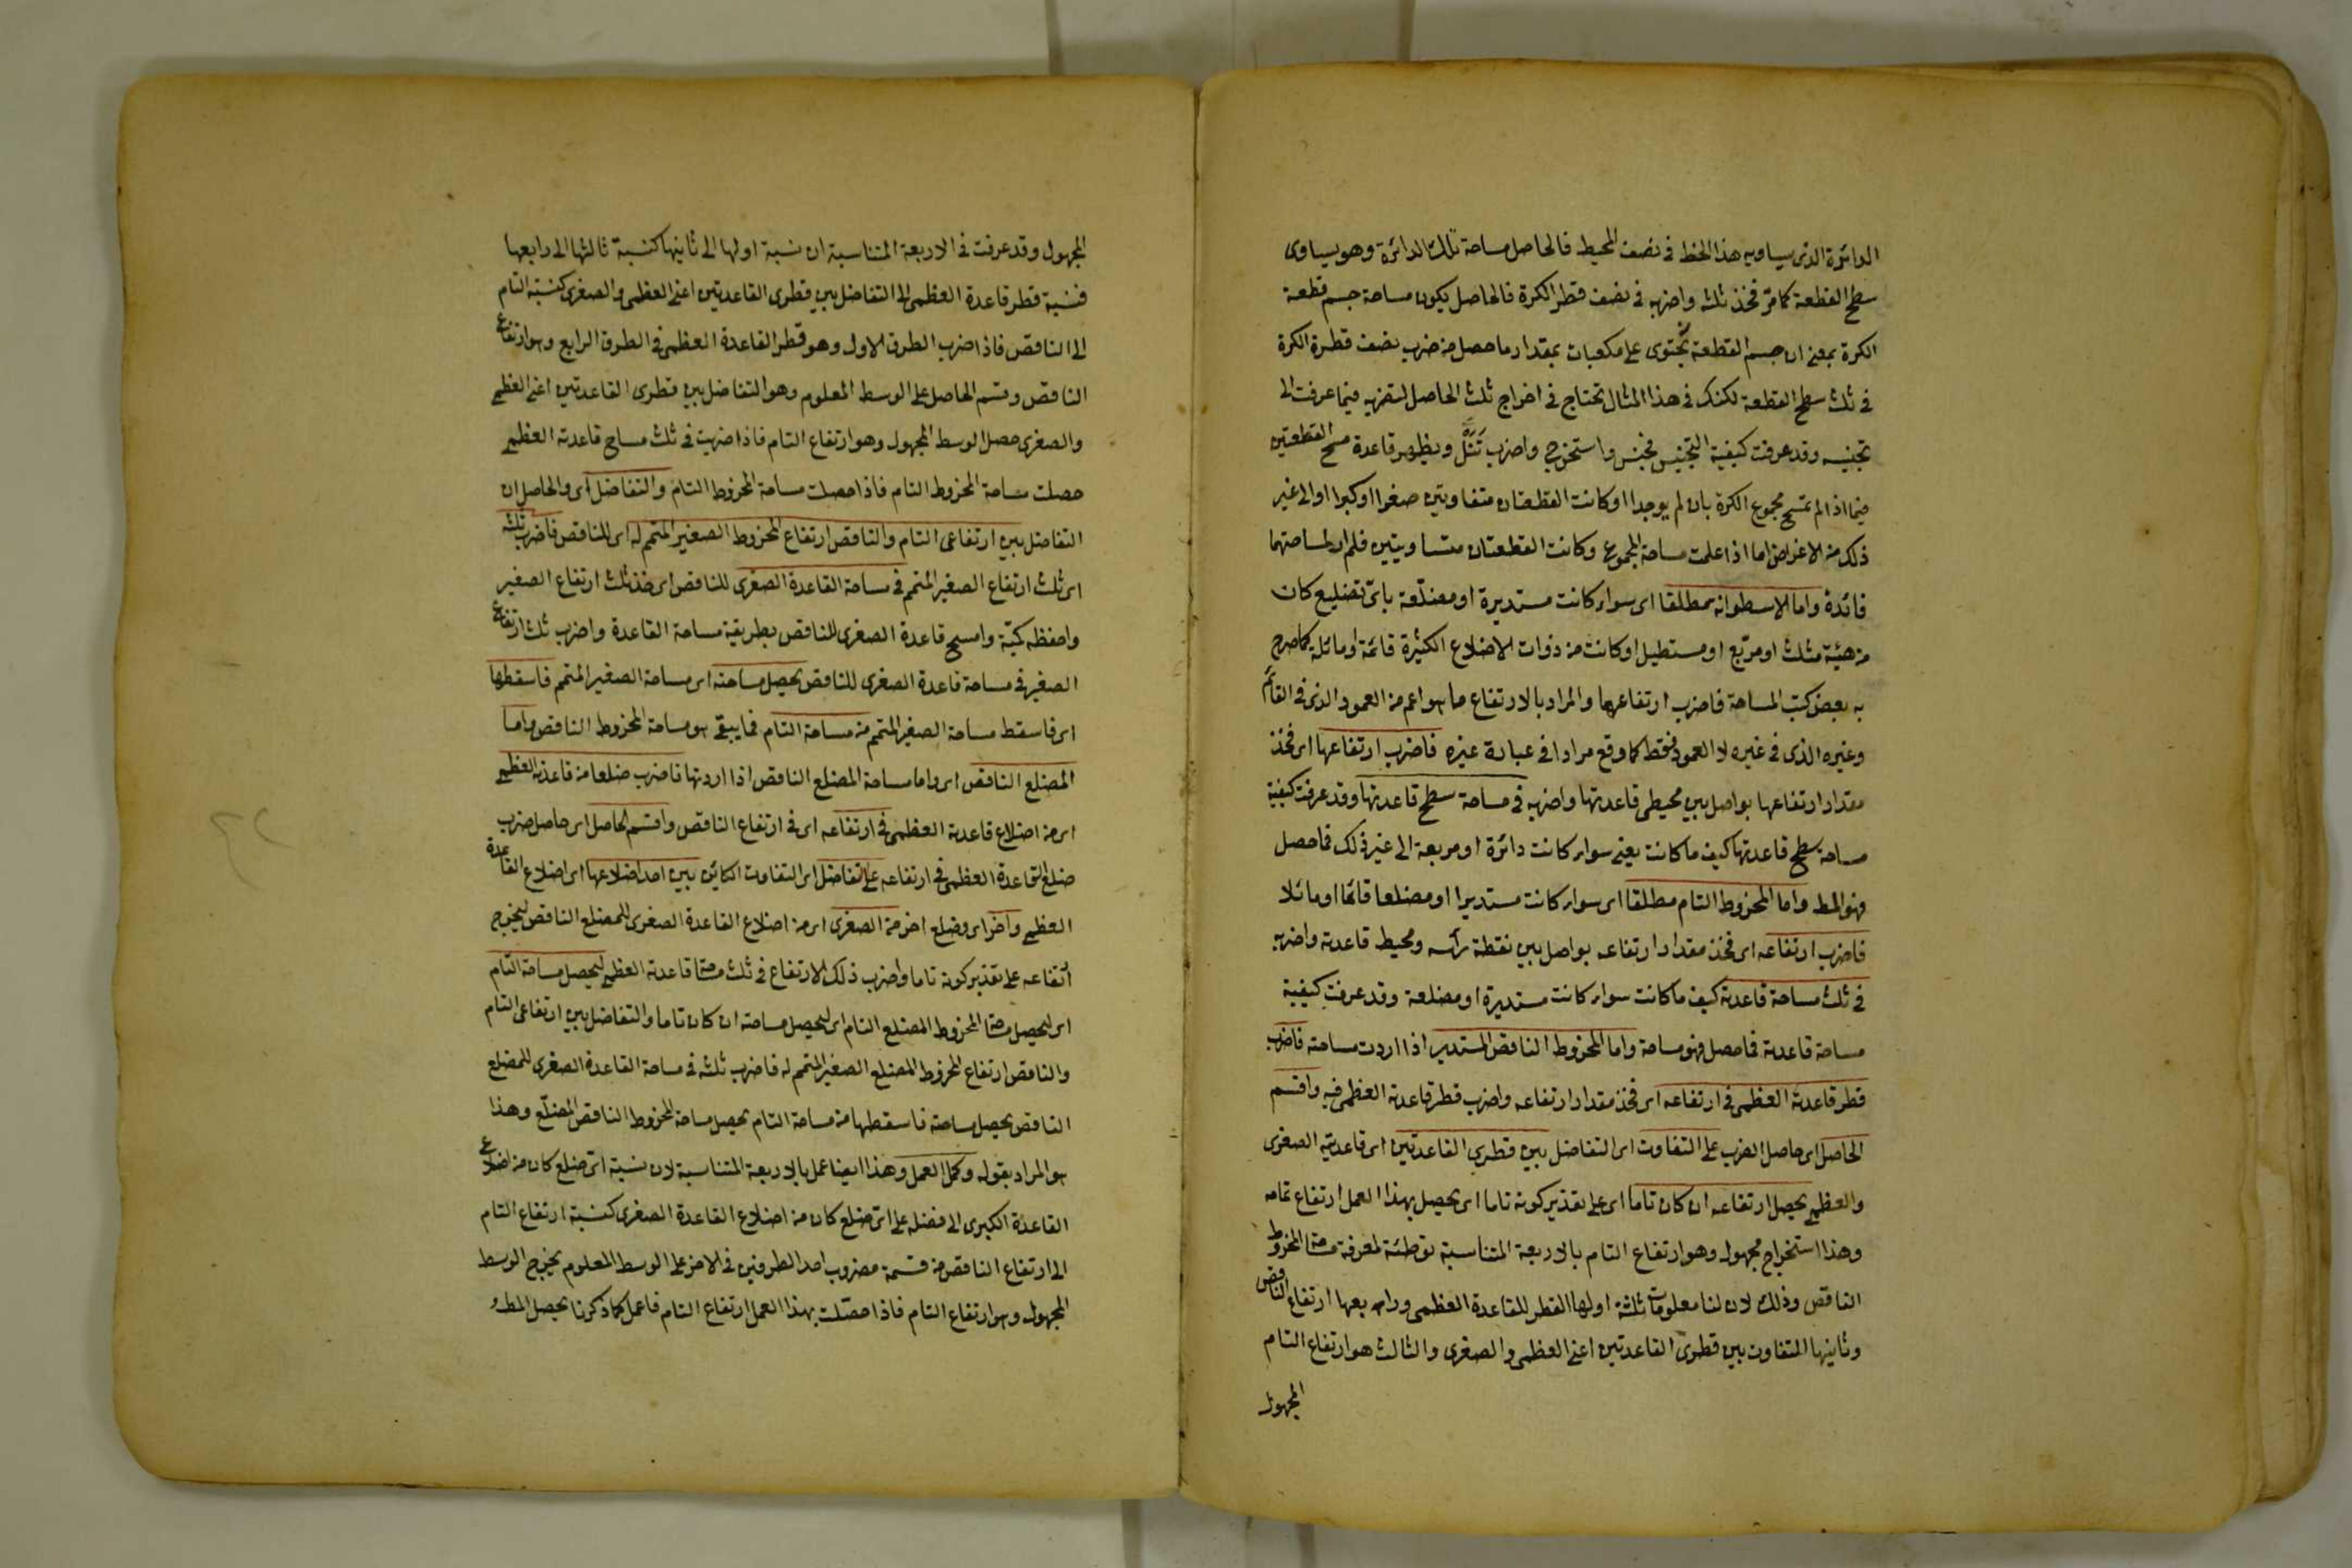 الدائرة الذى يساويه هذا الخط فى نصف المحيط فالحاصل مساحة تلك الدائرة وهو يساوى
سطح القطعة كما مر فخذ ثلثه واضربه فى نصف قطر الكرة فالحاصل يكون مساحة جسم قطعة
الكرة بمعنى ان جسم القطعة يحتوى على مكعبات بمقدار ما حصل من ضرب نصف قطرة الكرة
فى ثلث سطح القطعة لكنك فى هذا المثال تحتاج فى اخراج ثلث الحاصل لتضربه فيما عرفت الى
تجنيسه وقد عرفت كيفية التجنيس فجنس واستخرج واضرب ويظهر قاعدة مسح القطعتين
فيما اذا لم تمسح مجموع الكرة بان لم يوجدا او كانت القطعتان متفاوتين صغرا او كبرا او الى غير
ذلك من الاغراض اما اذا علمت مساحة المجموع وكانت القطعتان متساويتين فلم ار لمساحتهما
فائدة واما الاسطوانة مطلقا اى سواء كانت مستديرة او مضلعة باى تضليع كان
من هيئة مثلث او مربع او مستطيل او كانت من ذوات الاضلاع الكثيرة قائمة او مائلة كما صرح
به بعض كتب المساحة فاضرب ارتفاعها والمراد بالارتفاع ما هو اعم من العمود الذى فى القائم
وغيره الذى فى غيره لا العمود فقط كما وقع مرادا فى عبارة غيره فاضرب ارتفاعها اى فخذ
مقدار ارتفاعها بواصل بين محيطى قاعدتها واضربه فى مساحة سطح قاعدتها وقد عرفت كيفية
مساحة سطح قاعدتها كيف ما كانت يعنى سواء كانت دائرة او مربعة الى غير ذلك فما حصل
فهو المط واما المخروط التام مطلقا اى سواء كانت مستديرا او مضلعا قائما او مائلا
فاضرب ارتفاعه اى فخذ مقدار ارتفاعه بواصل بين نقطة رأسه ومحيط قاعدته واضربه
فى ثلث مساحة قاعدته كيف ما كانت سواء كانت مستديرة او مضلعة وقد عرفت كيفية
مساحة قاعدته فما حصل فهو مساحة واما المخروط الناقص المستدير اذا اردت مساحته فاضرب
قطر قاعدته العظمى فى ارتفاعه اى فخذ مقدار ارتفاعه واضرب قطر قاعدته العظمى فيه واقسم
الحاصل اى حاصل الضرب على التفاوت اى التفاضل بين قطرى القاعدتين اى قاعدتيه الصغرى
والعظمى يحصل ارتفاعه ان كان تاما اى على تقدير كونه تاما اى يحصل بهذا العمل ارتفاع تمامه
وهذا استخراج مجهول وهو ارتفاع التام بالاربعة المتناسبة توطئة لمعرفة مسحة المخروط
الناقص وذلك لان لنا معلومات ثلثة اولها القطر للقاعدة العظمى ورابعها ارتفاع الناقص
وثانيها التفاوت بين قطرى القاعدتين اعنى العظمى والصغرى والثالث هو ارتفاع التام
المجهول
المجهول وقد عرفت فى الاربعة المتناسبة ان نسبة اولها الى ثانيها كنسبة ثالثها الى رابعها
فنسبة قطر قاعدة العظمى الى التفاضل بين قطرى القاعدتين اعنى العظمى والصغرى كنسبة التام
الى الناقص فاذا ضرب الطرف الاول وهو قطر القاعدة العظمى فى الطرف الرابع وهو ارتفاع
الناقص وقسم الحاصل على الوسط المعلوم وهو التفاضل بين قطرى القاعدتين اعنى العظمى
والصغرى حصل الوسط المجهول وهو ارتفاع التام فاذا ضربت فى ثلث مساحة قاعدته العظمى
حصلت مساحة المخروط التام فاذا حصلت مساحة المخروط التام والتفاضل اى والحاصل ان
التفاضل بين ارتفاعى التام والناقص ارتفاع المخروط الصغير المتمم له اى للناقص فاضرب ثلثه
اى ثلث ارتفاع الصغير المتمم فى مساحة القاعدة الصغرى للناقص اى خذ ثلث ارتفاع الصغير
واحفظه كمية وامسح قاعدة الصغرى للناقص بطريقة مساحة القاعدة واضرب ثلث ارتفاع
الصغير فى مساحة قاعدة الصغرى للناقص يحصل مساحته اى مساحة الصغير المتمم فاسقطها
اى فاسقط مساحة الصغير المتمم من مساحة التام فما يبقى هو مساحة المخروط الناقص واما
المضلع الناقص اى واما مساحة المضلع الناقص اذا اردتها فاضرب ضلعا من قاعدته العظمى
اى من اضلاع قاعدته العظمى فى ارتفاعه اى فى ارتفاع الناقص واقسم الحاصل اى حاصل ضرب
ضلع القاعدة العظمى فى ارتفاعه على التفاضل اى التفاوت الكائن بين احد اضلاعها اى اضلاع القاعدة
العظمى واخر اى وضلع اخر من الصغرى اى من اضلاع القاعدة الصغرى للمضلع الناقص ليخرج
ارتفاعه على تقدير كونه تاما واضرب ذلك الارتفاع فى ثلث مسحة قاعدته العظمى ليحصل مساحة التام
اى ليحصل مسحة المخروط المضلع التام اى ليحصل مساحته ان كان تاما والتفاضل بين ارتفاعى التام
والناقص ارتفاع المخروط المضلع الصغير المتمم له فاضرب ثلثه فى مساحة القاعدة الصغرى للمضلع
الناقص يحصل مساحته فاسقطها من مساحة التام يحصل مساحة المخروط الناقص المضلع وهذا
هو المراد بقوله وكمل العمل وهذا ايضا عمل بالاربعة المتناسبة لان نسبة اى ضلع كان من اضلاع
القاعدة الكبرى الى فضله على اى ضلع كان من اضلاع القاعدة الصغرى كنسبة ارتفاع التام
الى ارتفاع الناقص من قسمة مضروب احد الطرفين فى الاخر على الوسط المعلوم يخرج الوسط
المجهول وهو ارتفاع التام فاذا حصلت بهذا العمل ارتفاع التام فاعمل كما ذكرنا يحصل المط و